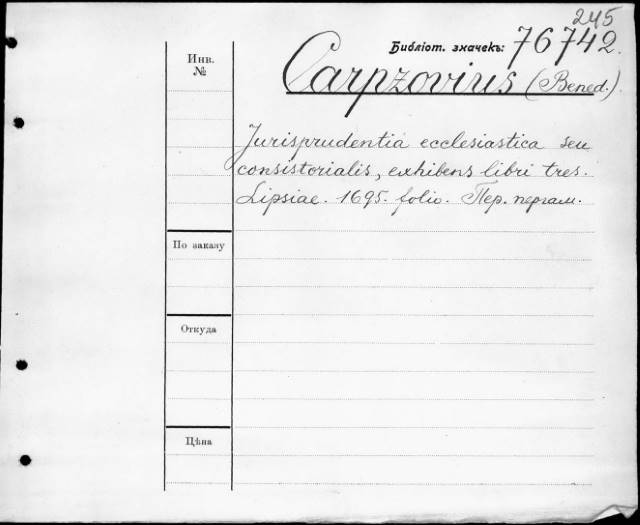 245
Библіот. значекъ: 76742.
Инв.
№
Carpzovius (Bened.)
Jurisprudentia ecclesiastica seu
consistorialis, exhibens libri tres.
Lipsiae. 1695. folio. Пер. пергам.
По заказу
Откуда
Цѣна